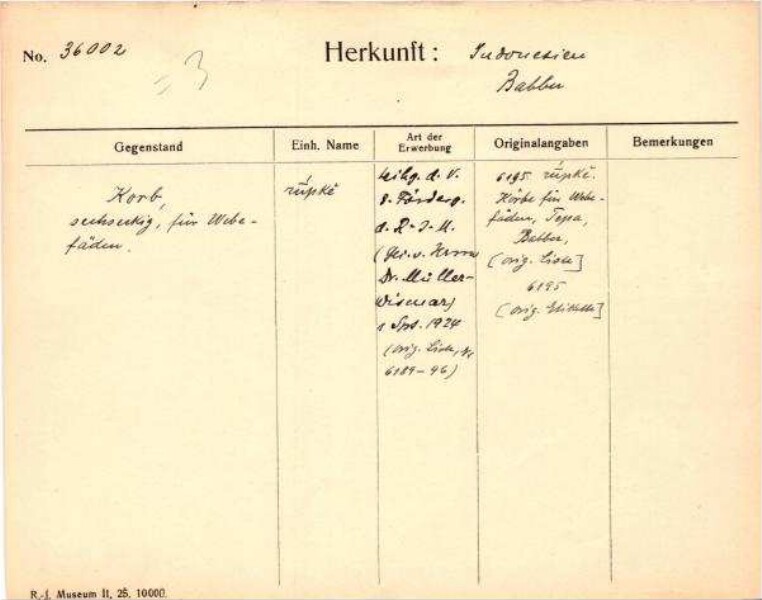 No. 36002
Herkunft: Indonesien
Babber
Gegenstand
Einh. Name
Art der
Erwerbung
Originalangaben
Bemerkungen
Korb,
sechseckig, für Webe-
fäden.
rúpkĕ
d. V.
z. Förderg.
d. R-J-M.
(Herrn
Dr. Müller-
Wismar)
1924
(orig. Liste, No
6189-96)
6195 rúpkĕ.
Körbe für Webe-
fäden, Tepa,
Babber,
(orig. Liste]
6195
(orig. Etikette]
R.-J. Museum II, 25. 10000.